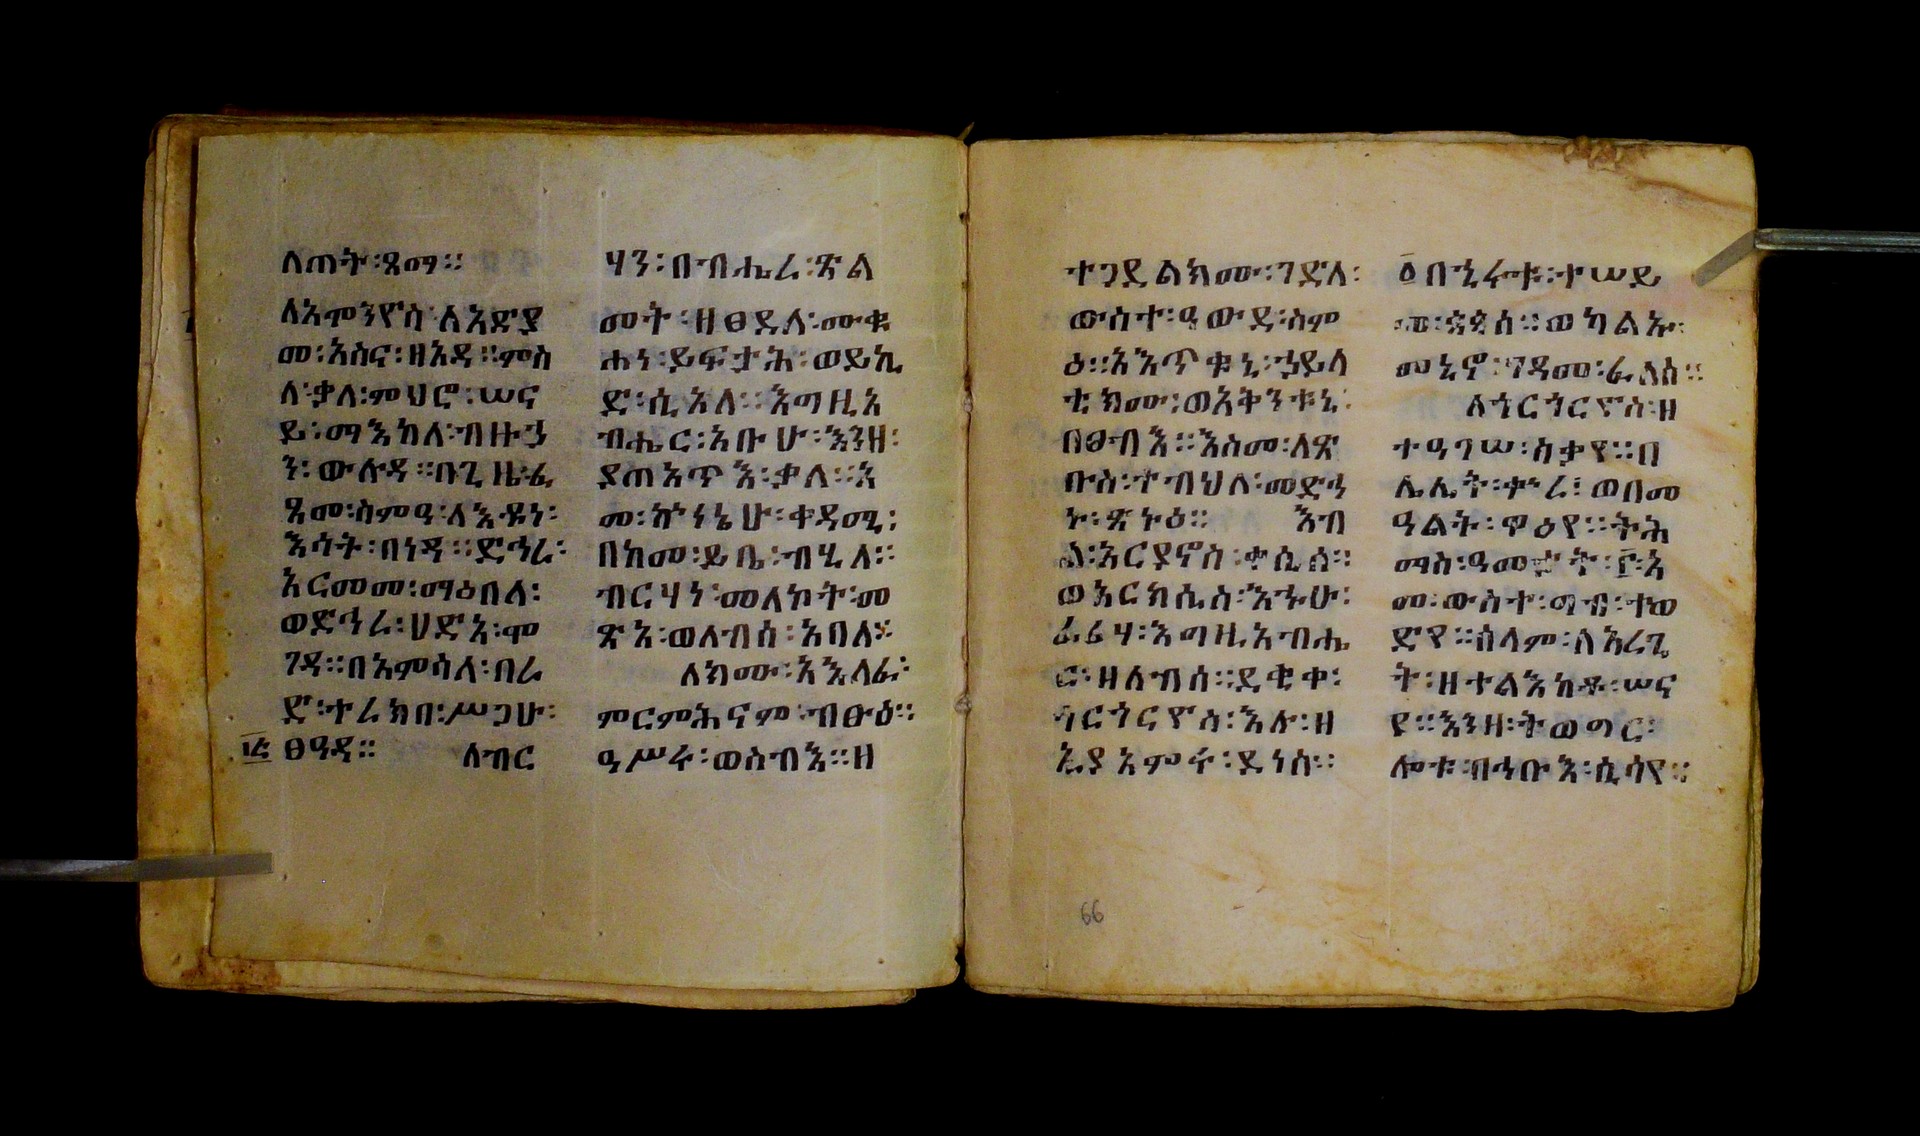 ለጠት፡ጾማ።
ለእሞንዮስ፡ለአድያ
መ፡እስና፡ዘአዳ።ምስ
ለ፡ቃለ፡ምህሮ፡ሠና
ይ፡ማእከለ፡ብዙኃ
ን፡ውሉዳ።በጊዜ፡ፈ
ጸመ፡ስምዓ፡ለእዱነ፡
እሳት፡በነዳ።ድኅረ፡
አርመመ፡ማዕበለ፡
ወድኅረ፡ሀድአ፡ሞ
ገዳ።በአምሳለ፡በረ
ድ፡ተረክበ፡ሥጋሁ፡
ፀዓዳ። ለብር
ሃን፡በብሔረ፡ጽል
መት፡ዘፀደለ፡ሙቁ
ሐነ፡ይፍታሕ፡ወይኪ
ድ፡ሲኦለ።እግዚአ
ብሔር፡አቡሁ፡እንዘ፡
ያጠአጥእ፡ቃለ።እ
መ፡ኰነኔሁ፡ቀዳሚ፡
በከመ፡ይቤ፡ብሂለ።
ብርሃነ፡መለኮት፡መ
ጽአ፡ወለብሰ፡አበለ።
ለክሙ፡እእላፈ፡
ምርምሕናም፡ብፁዕ።
ዓሥሩ፡ወስብእ።ዘ
ተጋደልክሙ፡ገድለ፡
ውስተ፡ዓውደ፡ስም
ዕ።እእጥቁኒ፡ኃይለ
ቲክሙ፡ወአቅንቱኒ፡
በፅብእ።እስመ፡ለጽ
ቡስ፡ተብህለ፡መድኅ
ኑ፡ጽኑዕ። እብ
ል፡አርያኖስ፡ቀሲሰ።
ወእርክሲስ፡እኍሁ፡
ፈሪሃ፡እግዚአብሔ
ር፡ዘለብሰ።ደቂቀ፡
ጎርጎርዮስ፡እሉ፡ዘ
ኢያአምሩ፡ደነስ።
፩በኂሩቱ፡ተሠይ
መ፡ጳጳሰ።ወካልኡ፡
መኒኖ፡ገዳመ፡ፈለሰ።
ለጎርጎርዮስ፡ዘ
ተዓገሠ፡ስቃየ።በ
ሌሊት፡ቍረ፡ወበመ
ዓልት፡ዋዕየ።ትሕ
መ፡ውስተ፡ግብ፡ተወ
ድየ።ሰላም፡ለአረጊ
ት፡ዘተልእከቶ፡ሠና
የ።እንዘ፡ትወግር፡
ሎቱ፡በኅቡእ፡ሲሳየ።
66